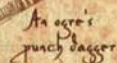 An ogre's
punch dagger